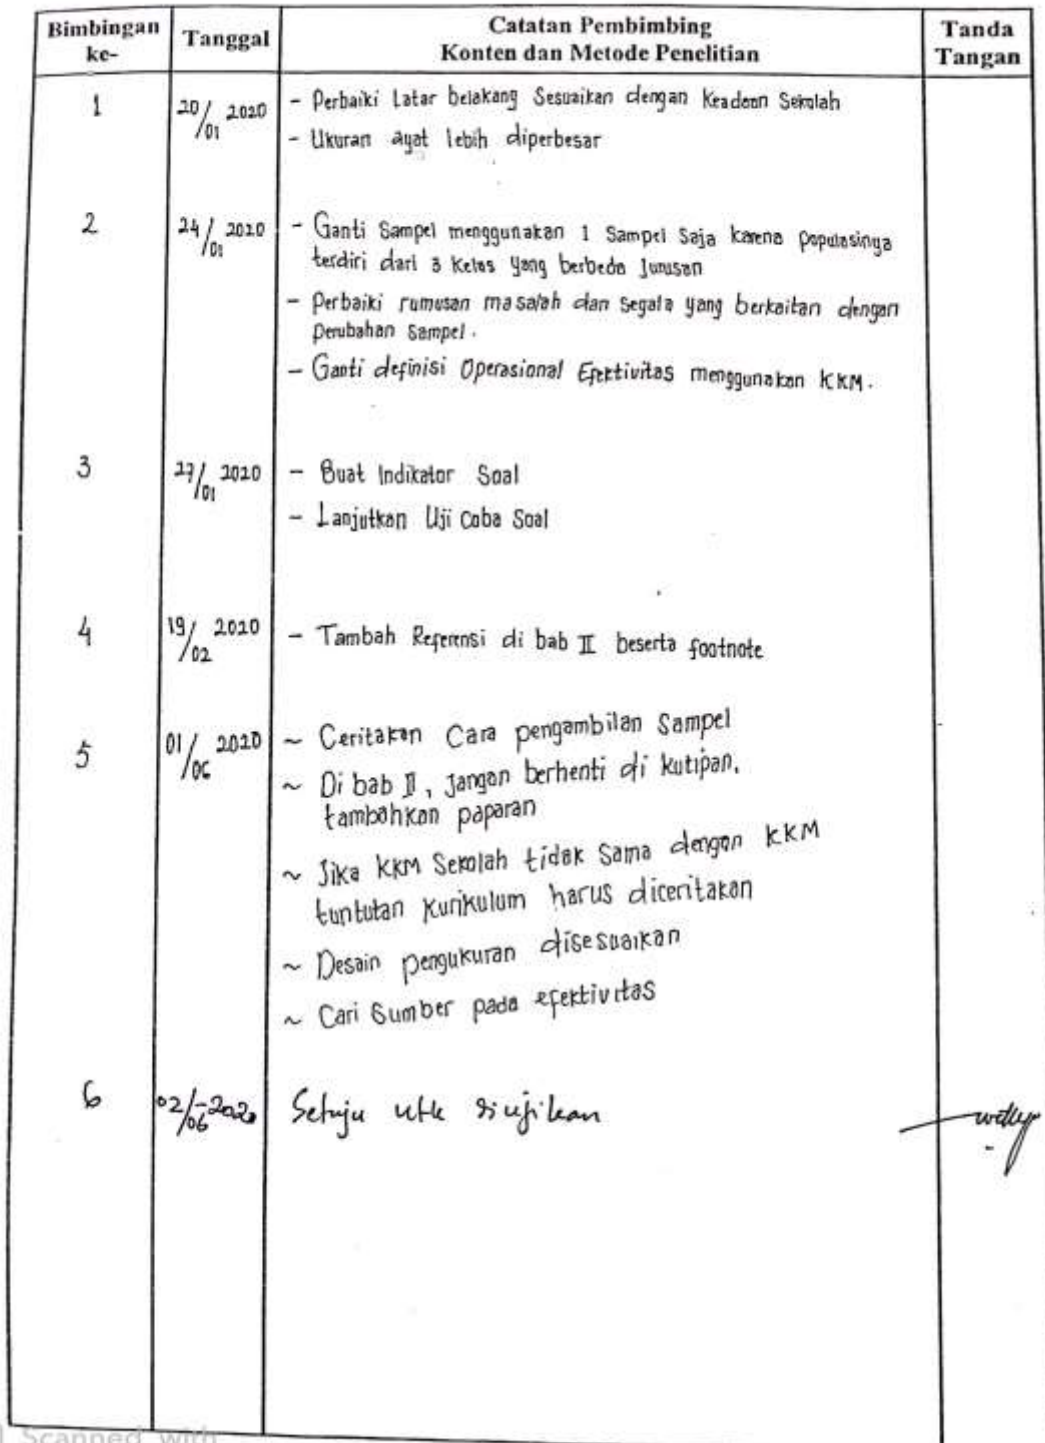 Bimbingan ke- Tanggal Catatan Pembimbing Konten dan Metode Penelitian Tanda Tangan
1 20/01 2020 - Perbaiki Latar belakang Sesuaikan dengan Keadaan Sekolah
- Ukuran ayat lebih diperbesar
2 24/01 2020 - Ganti Sampel menggunakan 1 Sampel Saja karena populasinya
terdiri dari 3 Kelas yang berbeda Jurusan
- Perbaiki rumusan masalah dan segala yang berkaitan dengan
perubahan sampel.
- Ganti definisi Operasional Efektivitas menggunakan KKM.
3 27/01 2020 - Buat Indikator Soal
- Lanjutkan Uji Coba Soal
4 19/02 2020 - Tambah Referensi di bab II beserta footnote
5 01/06 2020 ~ Ceritakan Cara pengambilan Sampel
~ Di bab II, jangan berhenti di kutipan,
tambahkan paparan
~ Jika KKM Sekolah tidak Sama dengan KKM
tuntutan Kurikulum harus diceritakan
~ Desain pengukuran disesuaikan
~ Cari Sumber pada efektivitas
6 02/06-2020 Setuju utk diujikan
Scanned with